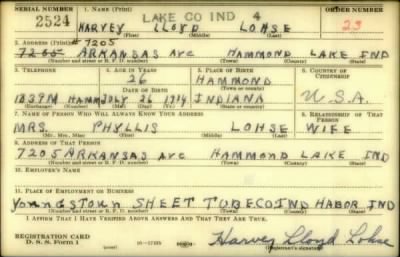 SERIAL NUMBER 1. NAME (Print) LAKE CO IND 4 ORDER NUMBER
2524 HARVEY LLOYD LOHSE 23
(First) (Middle) (Last)
2. ADDRESS (Print) # 7205
7205 ARKANSAS AVE HAMMOND LAKE IND
(Number and street or R. F. D. number) (Town) (County) (State)
3. TELEPHONE 4. AGE IN YEARS 5. PLACE OF BIRTH 6. COUNTRY OF CITIZENSHIP
26 HAMMOND
DATE OF BIRTH (Town or county)
1839M HAMM JULY 26 1914 INDIANA U.S.A.
(Exchange) (Number) (Mo.) (Day) (Yr.) (State or country)
7. NAME OF PERSON WHO WILL ALWAYS KNOW YOUR ADDRESS 8. RELATIONSHIP OF THAT PERSON
MRS PHYLLIS LOHSE WIFE
(Mr., Mrs., Miss) (First) (Middle) (Last)
9. ADDRESS OF THAT PERSON
7205 ARKANSAS AVE HAMMOND LAKE IND
(Number and street or R. F. D. number) (Town) (County) (State)
10. EMPLOYER'S NAME
11. PLACE OF EMPLOYMENT OR BUSINESS
YOUNGSTOWN SHEET TUBE CO IND HABOR IND
(Number and street or R. F. D. number) (Town) (County) (State)
I AFFIRM THAT I HAVE VERIFIED ABOVE ANSWERS AND THAT THEY ARE TRUE.
REGISTRATION CARD
D. S. S. Form 1 16-17105 Harvey Lloyd Lohse
(Registrant's signature)